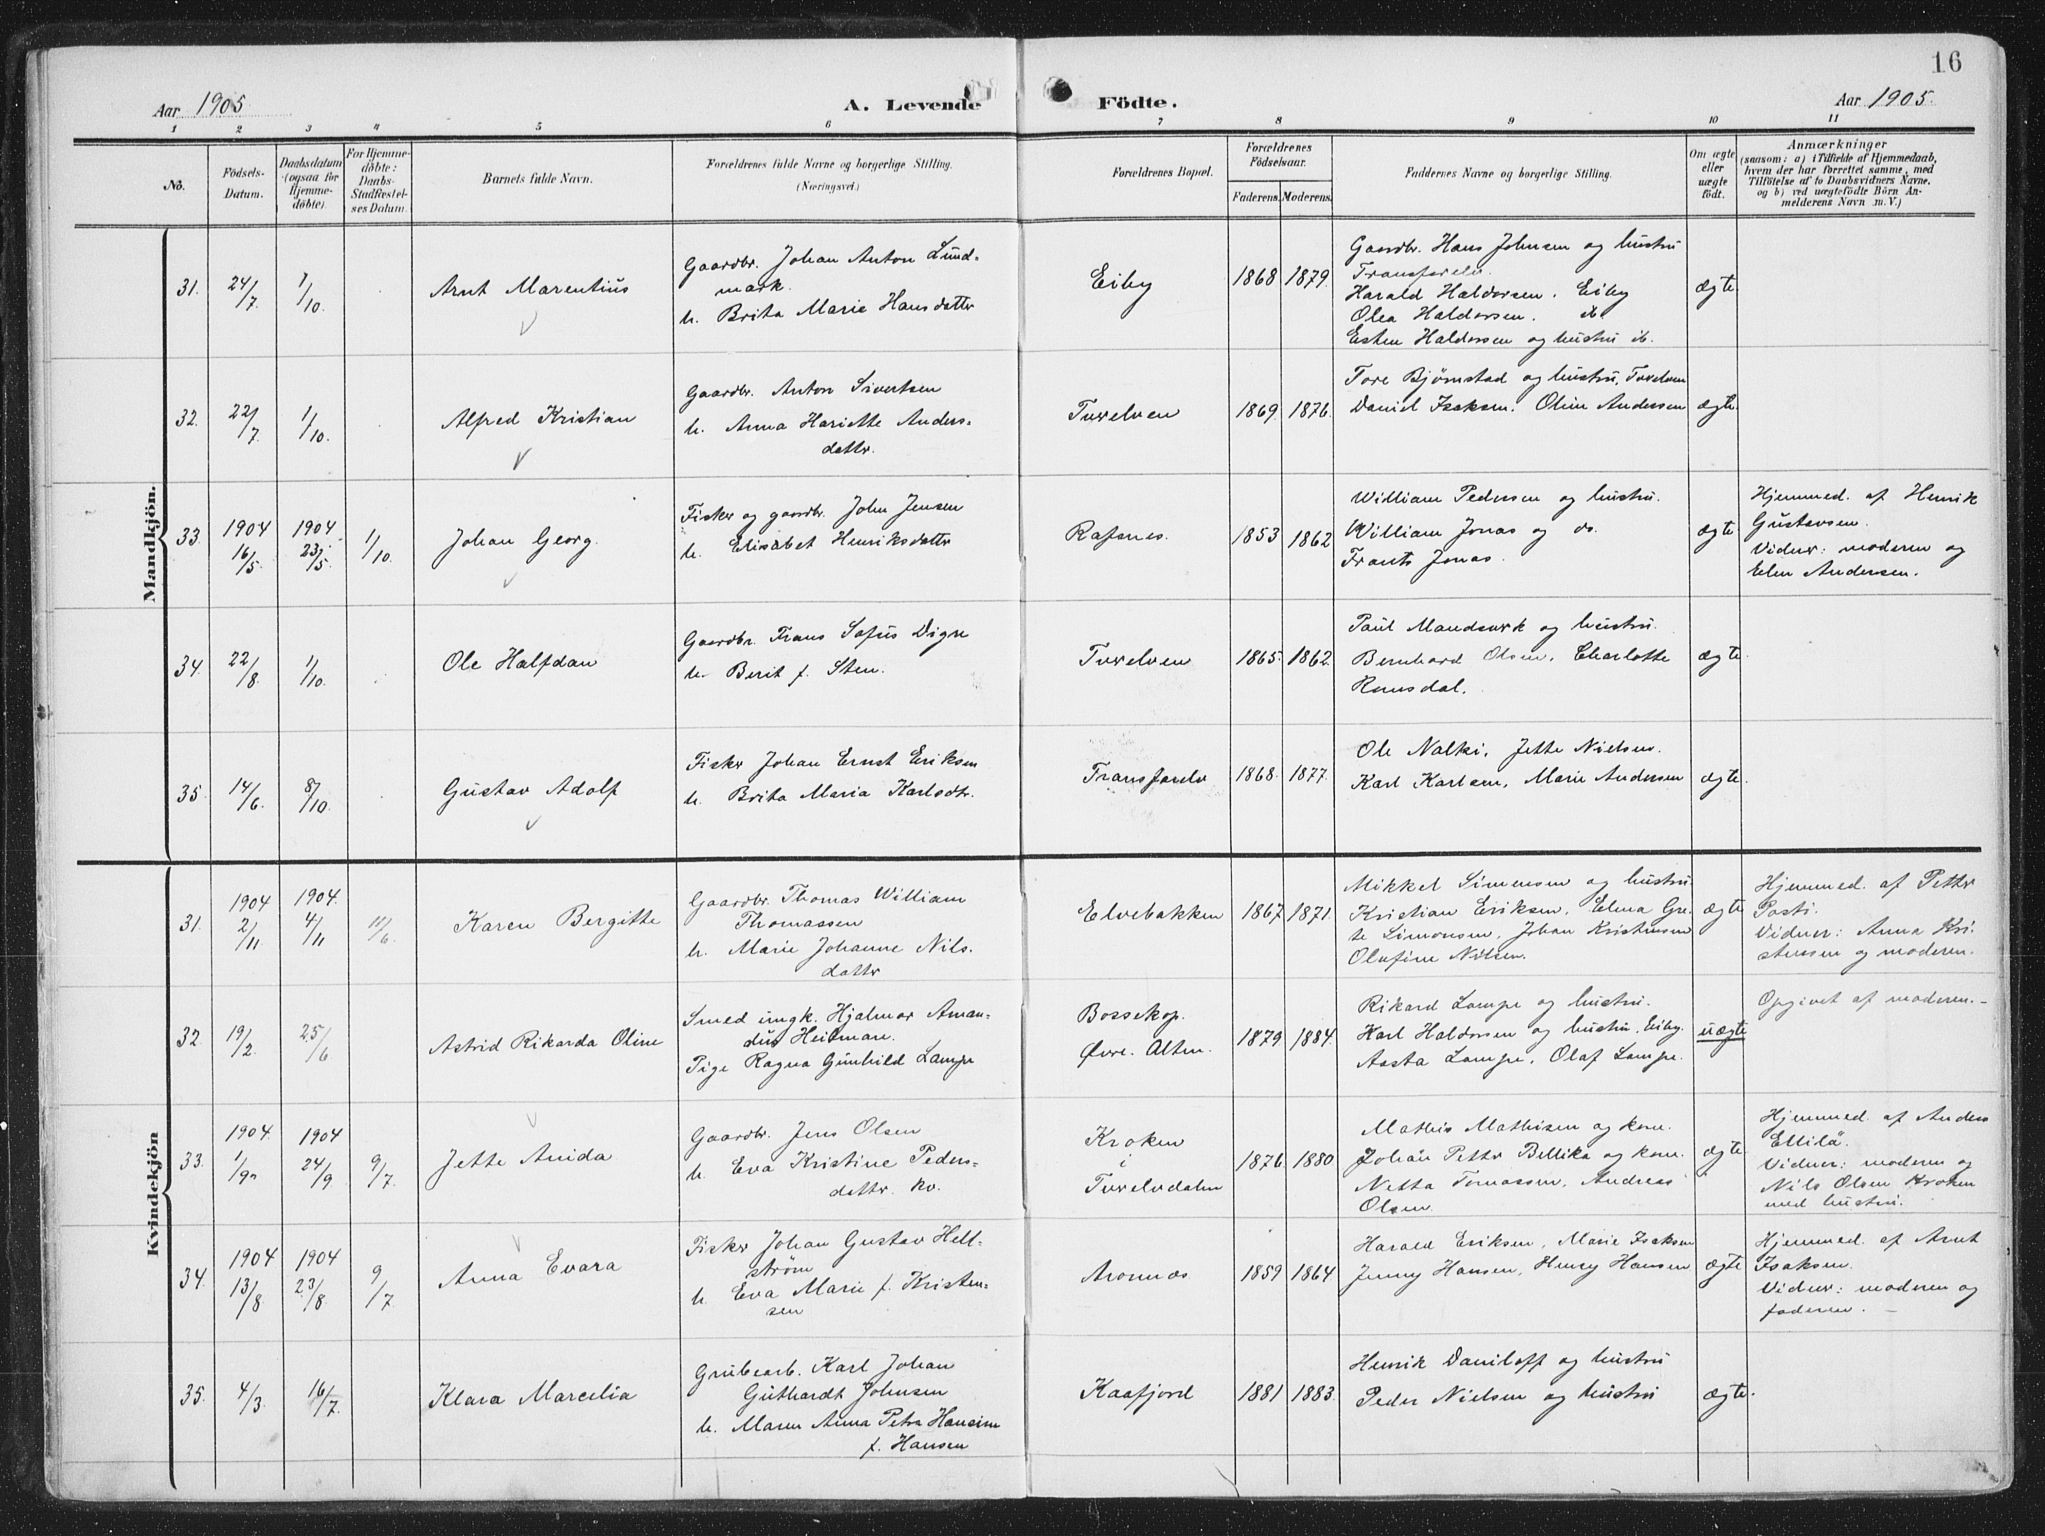 16
Aar 1905
A. Levende
Födte.
Aar 1905.
1 2 3 4 5 6 7 8 9 10 11
No.
Födsels-
Datum.
Daabsdatum
(ogsaa for
Hjemme-
döbte).
For Hjemme-
döbte:
Daabs-
Stadfæstel-
ses Datum.
Barnets fulde Navn.
Forældrenes fulde Navne og borgerlige Stilling.
(Næringsvei.)
Forældrenes Bopæl.
Forældrenes
Födselsaar.
Faderens. Moderens.
Faddernes Navne og borgerlige Stilling.
Om ægte
eller
uægte
födt.
Anmærkninger
(saasom: a) i Tilfælde af Hjemmedaab,
hvem der har forrettet samme, med
Tilföielse af to Daabsvidners Navne.
og b) ved uægtefödte Börn An-
melderens Navn m. V.)
Mandkjön.
31.
24/7
1/10
Arnt Marentius
Gaardbr. Johan Anton Lund-
mark.
h. Brita Marie Hansdatter
Eiby
1868 1879.
Gaardbr. Hans Johnsen og hustru
Transfarelv.
Harald Haldorsen. Eiby
Olea Haldorsen. ib.
Esten Haldorsen og hustru ib.
ægte
32.
22/7
1/10
Alfred Kristian
Gaardbr. Anton Sivertsen
h. Anna Hariette Anders-
datter.
Tverelven
1869. 1876.
Tore Bjørnstad og hustru, Tverelven
Daniel Isaksen. Oline Andersen
ægte.
33.
1904
16/5
1904
23/5
1/10
Johan Georg.
Fisker og gaardbr. John Jensen
h. Elisabet Henriksdatter
Rafsnes.
1853 1862
William Pedersen og hustru.
William Jonas og do.
Frants Jonas.
ægte
Hjemmed. af Henrik
Gustavsen.
Vidner: moderen og
Elen Andersen.
34.
22/8
1/10
Ole Halfdan
Gaardbr. Frans Sofus Digre
h. Berit f. Sten.
Tverelven
1865. 1862.
Paul Mandsverk og hustru.
Bernhard Olsen. Charlotte
Romsdal.
ægte.
35.
14/6
8/10
Gustav Adolf
Fisker Johan Ernst Eriksen
h. Brita Maria Karlsdtr.
Transfarelv
1868. 1877.
Ole Nalki. Jette Nielsen.
Karl Karlsen, Marie Andersen
ægte.
Kvindekjön
31.
1904
2/11
1904.
4/11
11/6.
Karen Bergitte
Gaardbr. Thomas William
Thomassen
h. Marie Johanne Nils-
datter
Elvebakken
1867 1871.
Mikkel Simonsen og hustru.
Kristian Eriksen. Elena Gre-
te Simonsen. Johan Kristensen
Olufine Nilsen.
ægte
Hjemmed. af Petter
Posti.
Vidner: Anna Kri-
stensen og moderen.
32.
19/2
25/6
Astrid Rikarda Oline
Smed ungk. Hjalmar Aman-
dus Heitman.
Pige Ragna Gunhild Lampe
Bossekop.
Øvre. Alten.
1879 1884.
Rikard Lampe og hustru.
Karl Haldorsen og hustru, Eiby.
Aasta Lampe, Olaf Lampe.
uægte
Opgivet af moderen.-
33.
1904.
1/9
1904
24/9
9/7
Jette Anida
Gaardbr. Jens Olsen
h. Eva Kristine Peders-
datter. kv.
Kroken
i
Tverelvdalen
1876. 1880
Mathis Mathisen og kone.
Johan Petter Bellika og kone.
Netta Tomassen, Andreas
Olsen.
ægte
Hjemmed. af Anders
Ellilä.
Vidner: moderen og
Nils Olsen Kroken
med hustru.
34.
1904
13/8
1904
23/8
9/7
Anna Evara
Fisker Johan Gustav Hell-
strøm
h. Eva Marie f. Kristen-
sen
Aronnes
1859 1864
Harald Eriksen, Marie Isaksen
Jenny Hansen, Henry Hansen
ægte
Hjemmed. af Arnt
Isaksen.
Vidner: moderen og
faderen.
35.
4/3
16/7.
Klara Marcelia
Grubearb. Karl Johan
Guthardt Johnsen
h. Maren Anna Petra Hansine
f. Hansen
Kaafjord
1881 1883.
Henrik Daniloff og hustru
Peder Nielsen og hustru
ægte.